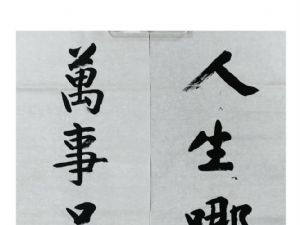 人生哪
萬事只